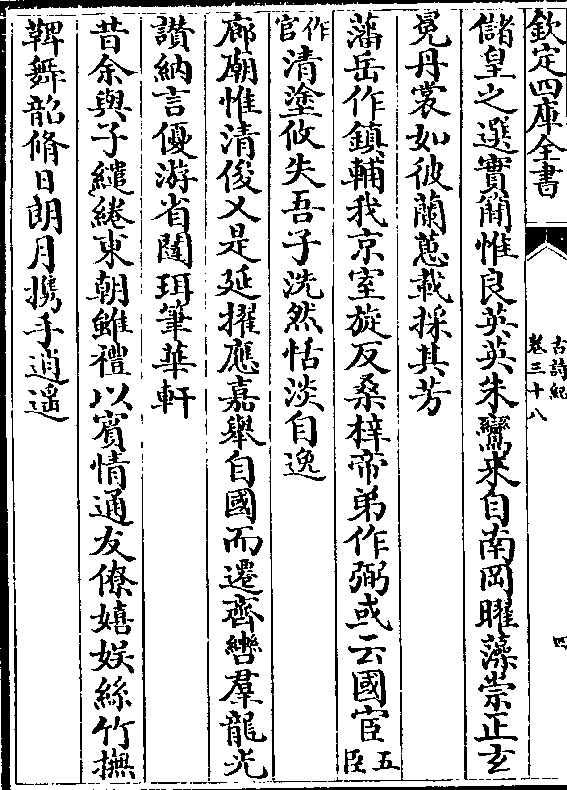 欽定四庫全書
古詩紀
卷三十八
四
儲皇之選實簡惟良英英朱鸞来自南岡曜藻崇正玄
冕丹裳如彼蘭蕙載採其芳
藩岳作鎮輔我京室旋反桑梓帝弟作弼或云國宦五臣
作官清塗攸失吾子洗然恬淡自逸
廊廟惟清俊乂是延擢應嘉舉自國而遷齊轡羣龍光
讚納言優游省闥珥筆華軒
昔余與子繾綣東朝雖禮以賓情通友僚嬉娱絲竹撫
鞞舞韶脩日朗月攜手逍遥